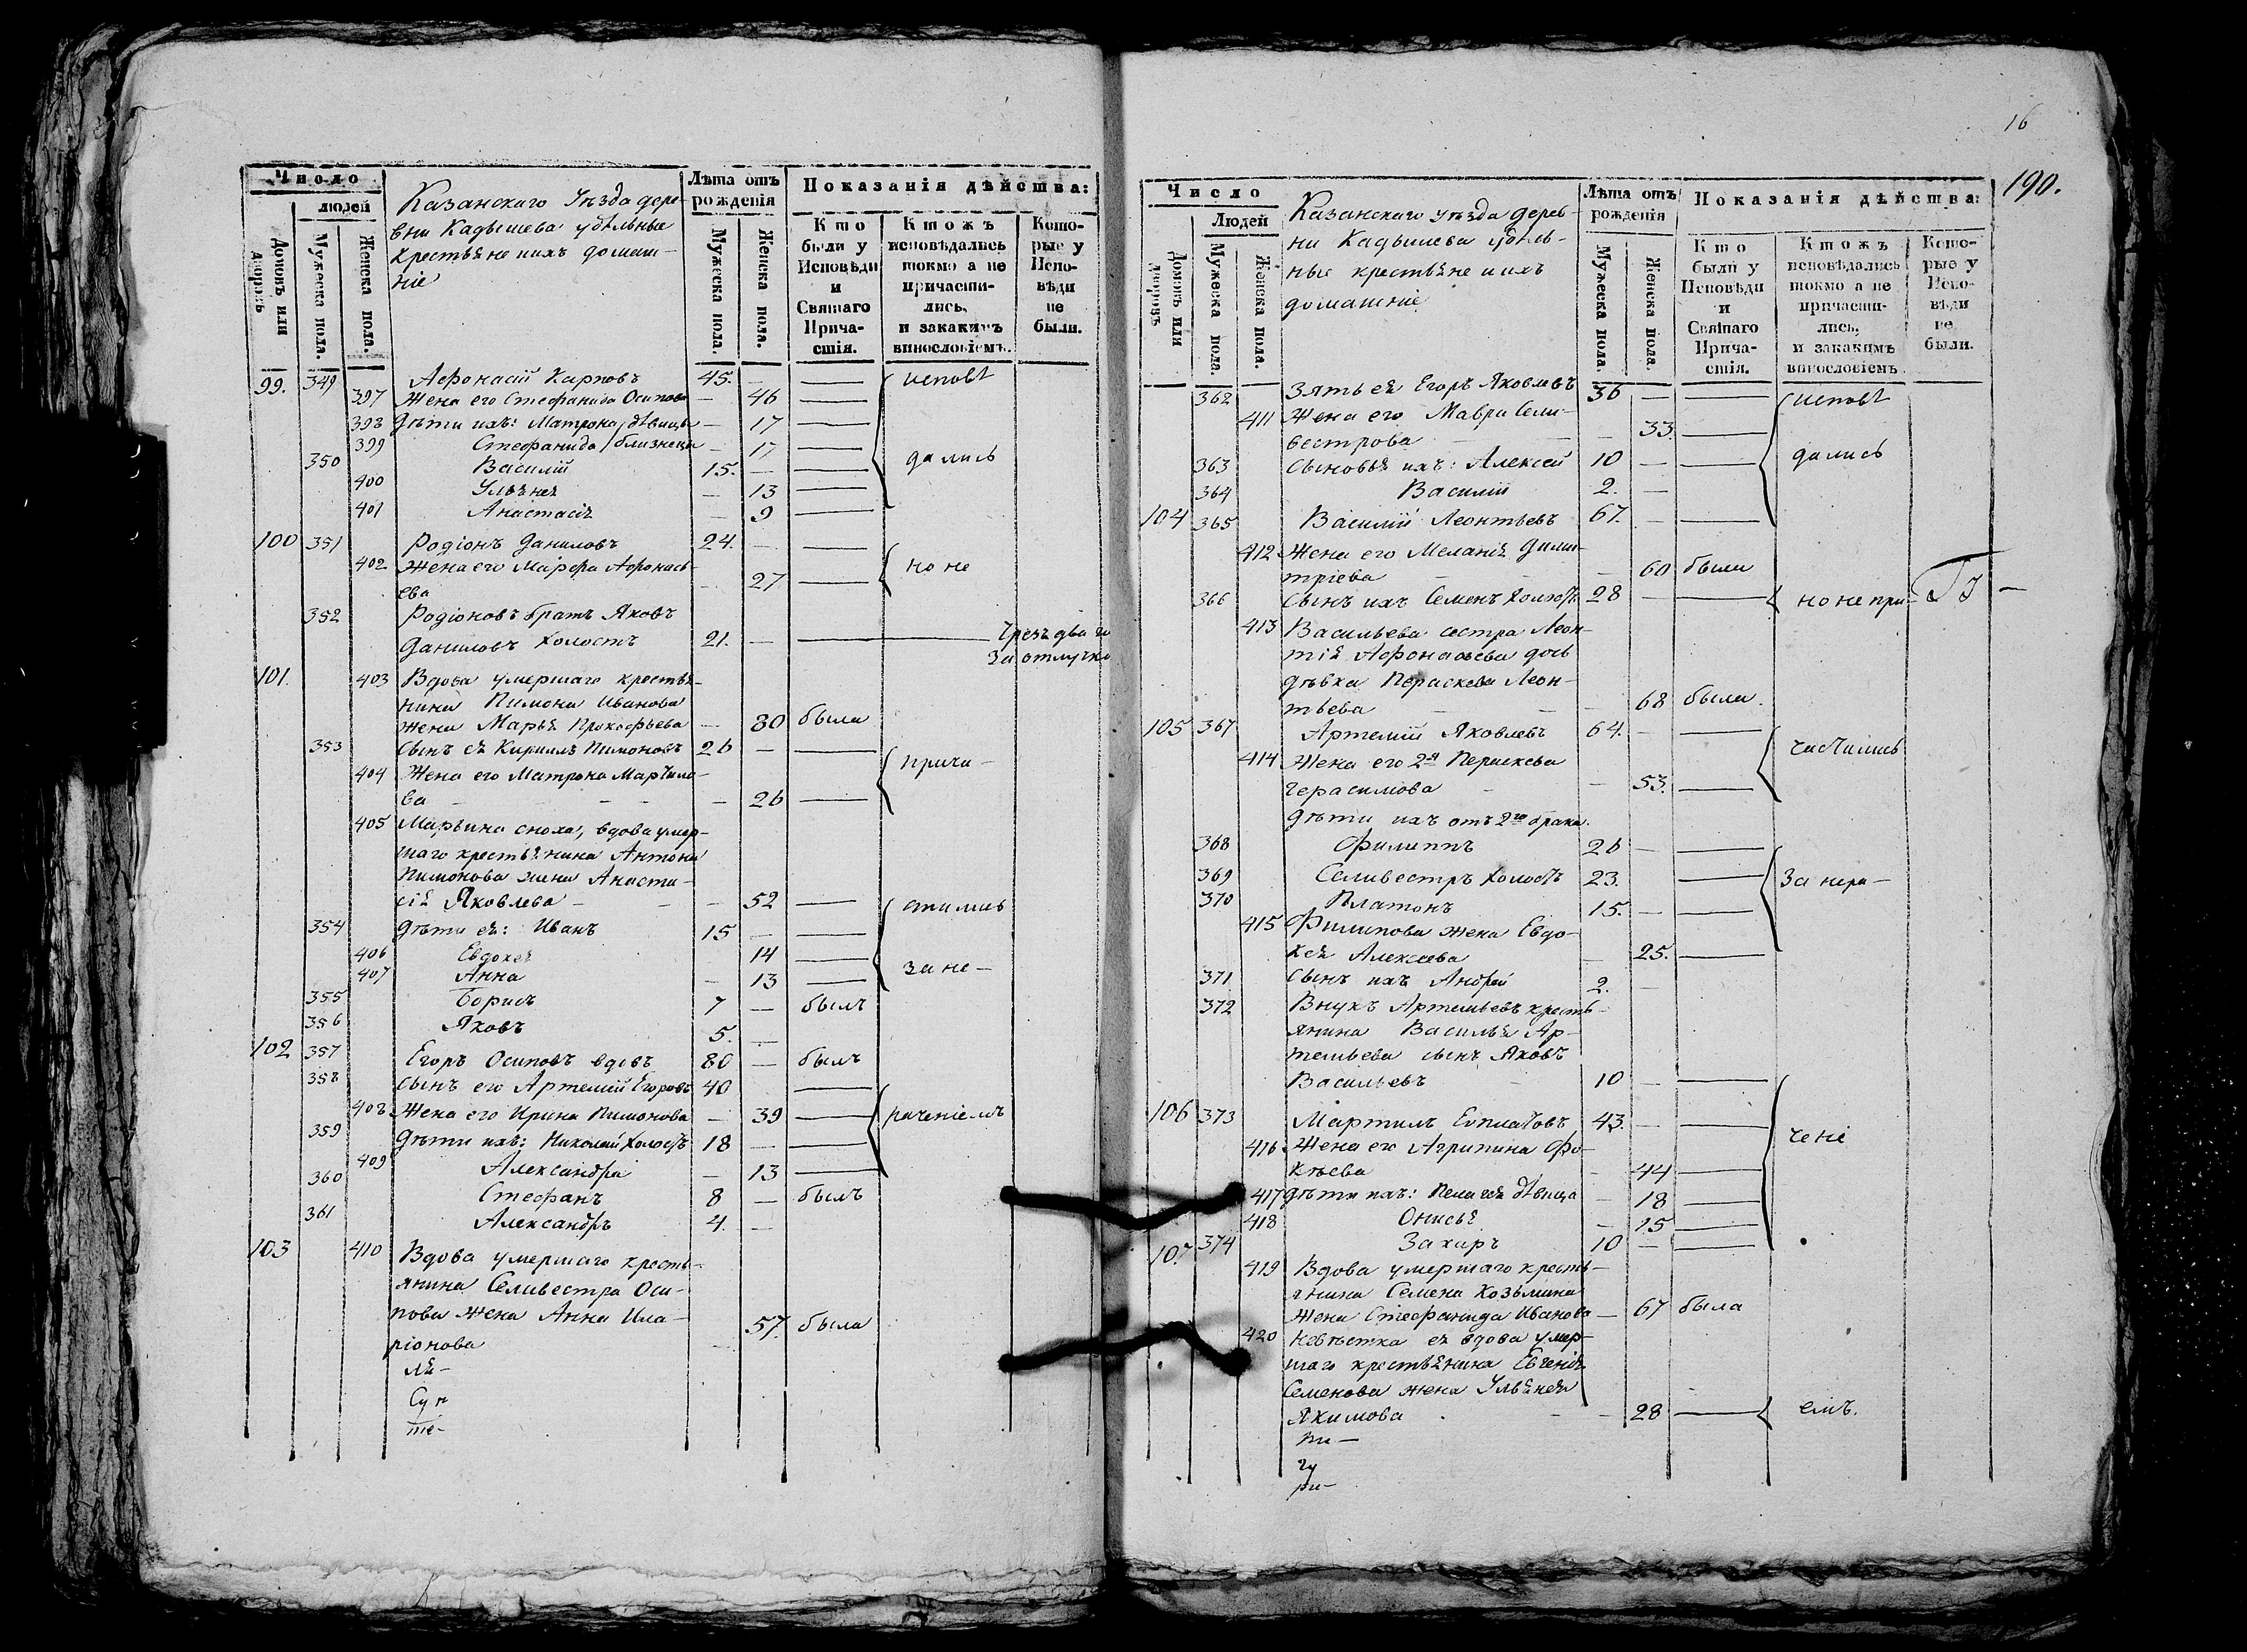 Число
людей
Домовъ или дворовъ
Мужеска пола.
Женска пола.
Казанскаго Уѣзда дере-
вни Кадышева удѣльные
крестьяне и ихъ домаш-
ніе
Лѣта отъ рожденія
Мужеска пола.
Женска пола.
Показанія дѣйства:
Кто были у Исповѣди и Святаго Прича-стія.
Ктожъ исповѣдались токмо а не причасти-лись, и закакимъ винословіемъ.
Кото-рые у Испо-вѣди не были.
99. 349 Афонасій Карповъ 45. — исповѣ
397 Жена его Стефанида Осипова — 46
398 Дѣти ихъ: Матрона дѣвица — 17
399 Стефанида близнецы — 17
350 Василій 15. — дались
400 Ульянея — 13
401 Анастасія — 9
100 351 Родіонъ Даниловъ 24. —
402 Жена его Марфа Афонась- но не
ева — 27
352 Родіоновъ братъ Яковъ
Даниловъ холостъ 21. — Чрезъ два го
За отлучк
101. 403 Вдова умершаго крестья-
нина Пимона Иванова
жена Марья Прокофьева — 80 была
353 Сынъ ея Кириллъ Пимоновъ 26 —
404 Жена его Матрона Марѳимо- прича-
ва — 26
405 Марьина сноха, вдова умер-
шаго крестьянина Антона
Пимонова жена Анаста-
сія Яковлева — 52 стились
354 Дѣти ея: Иванъ 15 —
406 Евдокея 14
407 Анна — 13 за не-
355 Борисъ 7 — былъ
356 Яковъ 5. —
102 357 Егоръ Осиповъ вдовъ 80 — былъ
358 Сынъ его Артемій Егоровъ 40
408 Жена его Ирина Пимонова — 39 раченіемъ
359 Дѣти ихъ: Николай холостъ 18 —
409 Александра — 13
360 Стефанъ 8 — былъ
361 Александръ 4. —
103 410 Вдова умершаго кресть-
янина Селивестра Оси-
пова жена Анна Ила-
ріонова — 57. была
ля-
Суп
те-
16
190.
Число
Людей
Домовъ или дворовъ
Мужеска пола.
Женска пола.
Казанскаго уѣзда дерев-
ни Кадышева удѣль-
ные крестьяне и ихъ
домашніе
Лѣта отъ рожденія
Мужеска пола.
Женска пола.
Показанія дѣйства:
Кто были у Исповѣди и Святаго Прича-стія.
Ктожъ исповѣдались токмо а не причасти-лись, и закакимъ винословіемъ
Кото-рые у Испо-вѣди не были.
362 Зять ея Егоръ Яковлевъ 36 — исповѣ
411 Жена его Мавра Сели-
вестрова — 33.
363 Сыновья ихъ: Алексей 10 — дались
364 Василій 2. —
104 365 Василій Леонтьевъ 67. —
412 Жена его Меланія Дими-
тріева — 60 были
366 Сынъ ихъ Семенъ холостъ 28 — но не при-
413 Васильева сестра Леон-
тія Афонасьева дочь
дѣвка Параскева Леон-
тьева — 68 была.
105 367 Артемій Яковлевъ 64. —
414 Жена его 2я Параскева частились
Герасимова — 53.
Дѣти ихъ отъ 2го брака.
368 Филиппъ 26 —
369 Селивестръ холостъ 23. За нера-
370 Платонъ 15. —
415 Филипова жена Евдо-
кея Алексеева — 25.
371 Сынъ ихъ Андрей 2. —
372 Внукъ Артемьевъ кресть-
янина Василья Ар-
темьева сынъ Яковъ
Васильевъ 10 —
106 373 Мартинъ Евплатовъ 43. —
416 Жена его Агрипина Фо- чені
кѣева — 44
417 Дѣти ихъ: Пелагея дѣвица — 18
418 Онисья — 15
374 Захаръ 10 —
107. 419 Вдова умершаго кресть-
янина Семена Козьмина
жена Стефанида Иванова — 67 была
420 Невѣстка ея вдова умер-
шаго крестьянина Евгенія
Семенова жена Ульянея
Якимова — 28 емъ.
пи-
гу
ри-